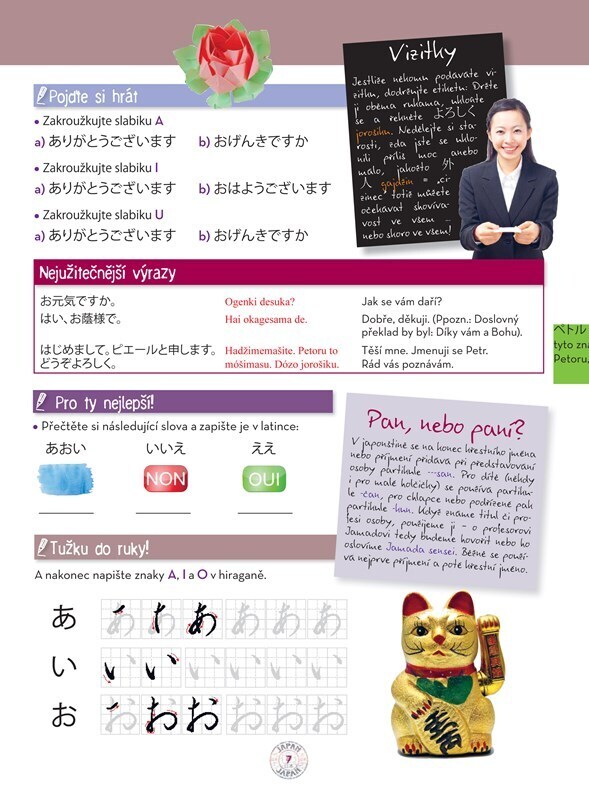 Pojďte si hrát
• Zakroužkujte slabiku A
a) ありがとうございます b) おげんきですか
• Zakroužkujte slabiku I
a) ありがとうございます b) おはようございます
• Zakroužkujte slabiku U
a) ありがとうございます b) おげんきですか
Vizitky
Jestliže někomu podáváte vi-
zitku, dodržujte etiketu: Držte
ji oběma rukama, ukloňte
se a řekněte よろしく
jorošiku. Nedělejte si sta-
rosti, zda jste se uklo-
nili příliš moc anebo
málo, jakožto 外
人 gajdžin = „ci-
zinec“ totiž můžete
očekávat shovíva-
vost ve všem –
nebo skoro ve všem!
Nejužitečnější výrazy
お元気ですか。 Ogenki desuka? Jak se vám daří?
はい、お蔭様で。 Hai okagesama de. Dobře, děkuji. (Ppozn.: Doslovný
překlad by byl: Díky vám a Bohu).
はじめまして。ピエールと申します。 Hadžimemašite. Petoru to Těší mne. Jmenuji se Petr.
どうぞよろしく。 móšimasu. Dózo jorošiku. Rád vás poznávám.
ペトル
tyto zna
Petoru,
Pro ty nejlepší!
• Přečtěte si následující slova a zapište je v latince:
あおい いいえ ええ
NON OUI
Pan, nebo paní?
V japonštině se na konec křestního jména
nebo příjmení přidává při představování
osoby partikule ---san. Pro dítě (někdy
i pro malé holčičky) se používá partiku-
le -čan, pro chlapce nebo podřízené pak
partikule -kun. Když známe titul či pro-
fesi osoby, použijeme ji – o profesorovi
Jamadovi tedy budeme hovořit nebo ho
oslovíme Jamada sensei. Běžně se použí-
vá nejprve příjmení a poté křestní jméno.
Tužku do ruky!
A nakonec napište znaky A, I a O v hiraganě.
あ あ あ あ あ あ
い い い い い い い
お お お お お お お
JAPAN
7
JAPAN